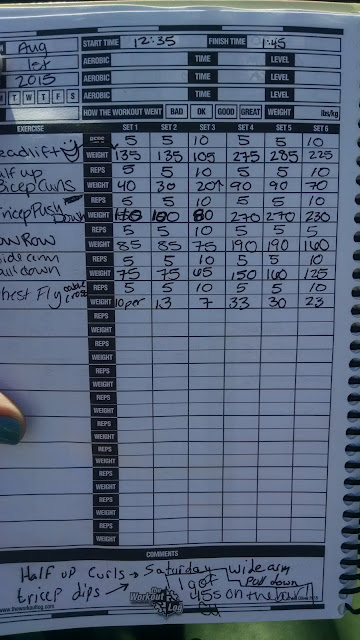 Aug START TIME 12:35 FINISH TIME 1:45
1st AEROBIC TIME LEVEL
2015 AEROBIC TIME LEVEL
T W T F S AEROBIC TIME LEVEL
HOW THE WORKOUT WENT BAD OK GOOD GREAT WEIGHT lbs/kg
EXERCISE SET 1 SET 2 SET 3 SET 4 SET 5 SET 6
REPS 5 5 10 5 5 10
eadlift WEIGHT 135 135 105 275 285 225
alf up REPS 5 5 10 5 5 10
Bicep Curls WEIGHT 40 30 20↑ 90 90 70
Tricep Push REPS 5 5 10 5 5 10
Down WEIGHT 80 270 270 230
REPS 5 5 10 5 5 5
Row WEIGHT 85 85 75 190 190 160
ide arm REPS 5 5 10 5 5 10
ull down WEIGHT 75 75 65 150 160 125
hest Fly cable REPS 5 5 10 5 5 10
cross WEIGHT 10 per 13 7 33 30 23
REPS
WEIGHT
REPS
WEIGHT
REPS
WEIGHT
REPS
WEIGHT
REPS
WEIGHT
REPS
WEIGHT
REPS
WEIGHT
REPS
WEIGHT
REPS
WEIGHT
COMMENTS
Half up Curls → Saturday wide arm
tricep dips → I got pull down
45s on the
www.theworkoutlog.com The Workout Log